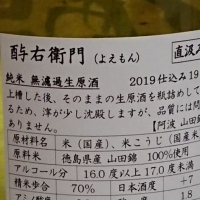 酉与右衛門（よえもん） 直汲み
純米 無濾過生原酒 2019仕込み19
上槽した後、そのままの生原酒を瓶詰めして
るため、滓が少し沈殿しますが、品質には問
ありません。 【阿波 山田錦
原材料名 米（国産）、米こうじ（国産
原料米 徳島県産 山田錦 100％使用
アルコール分 16.0度以上17.0度未満
精米歩合 70% 日本酒度 +7
アミノ酸度 1.8